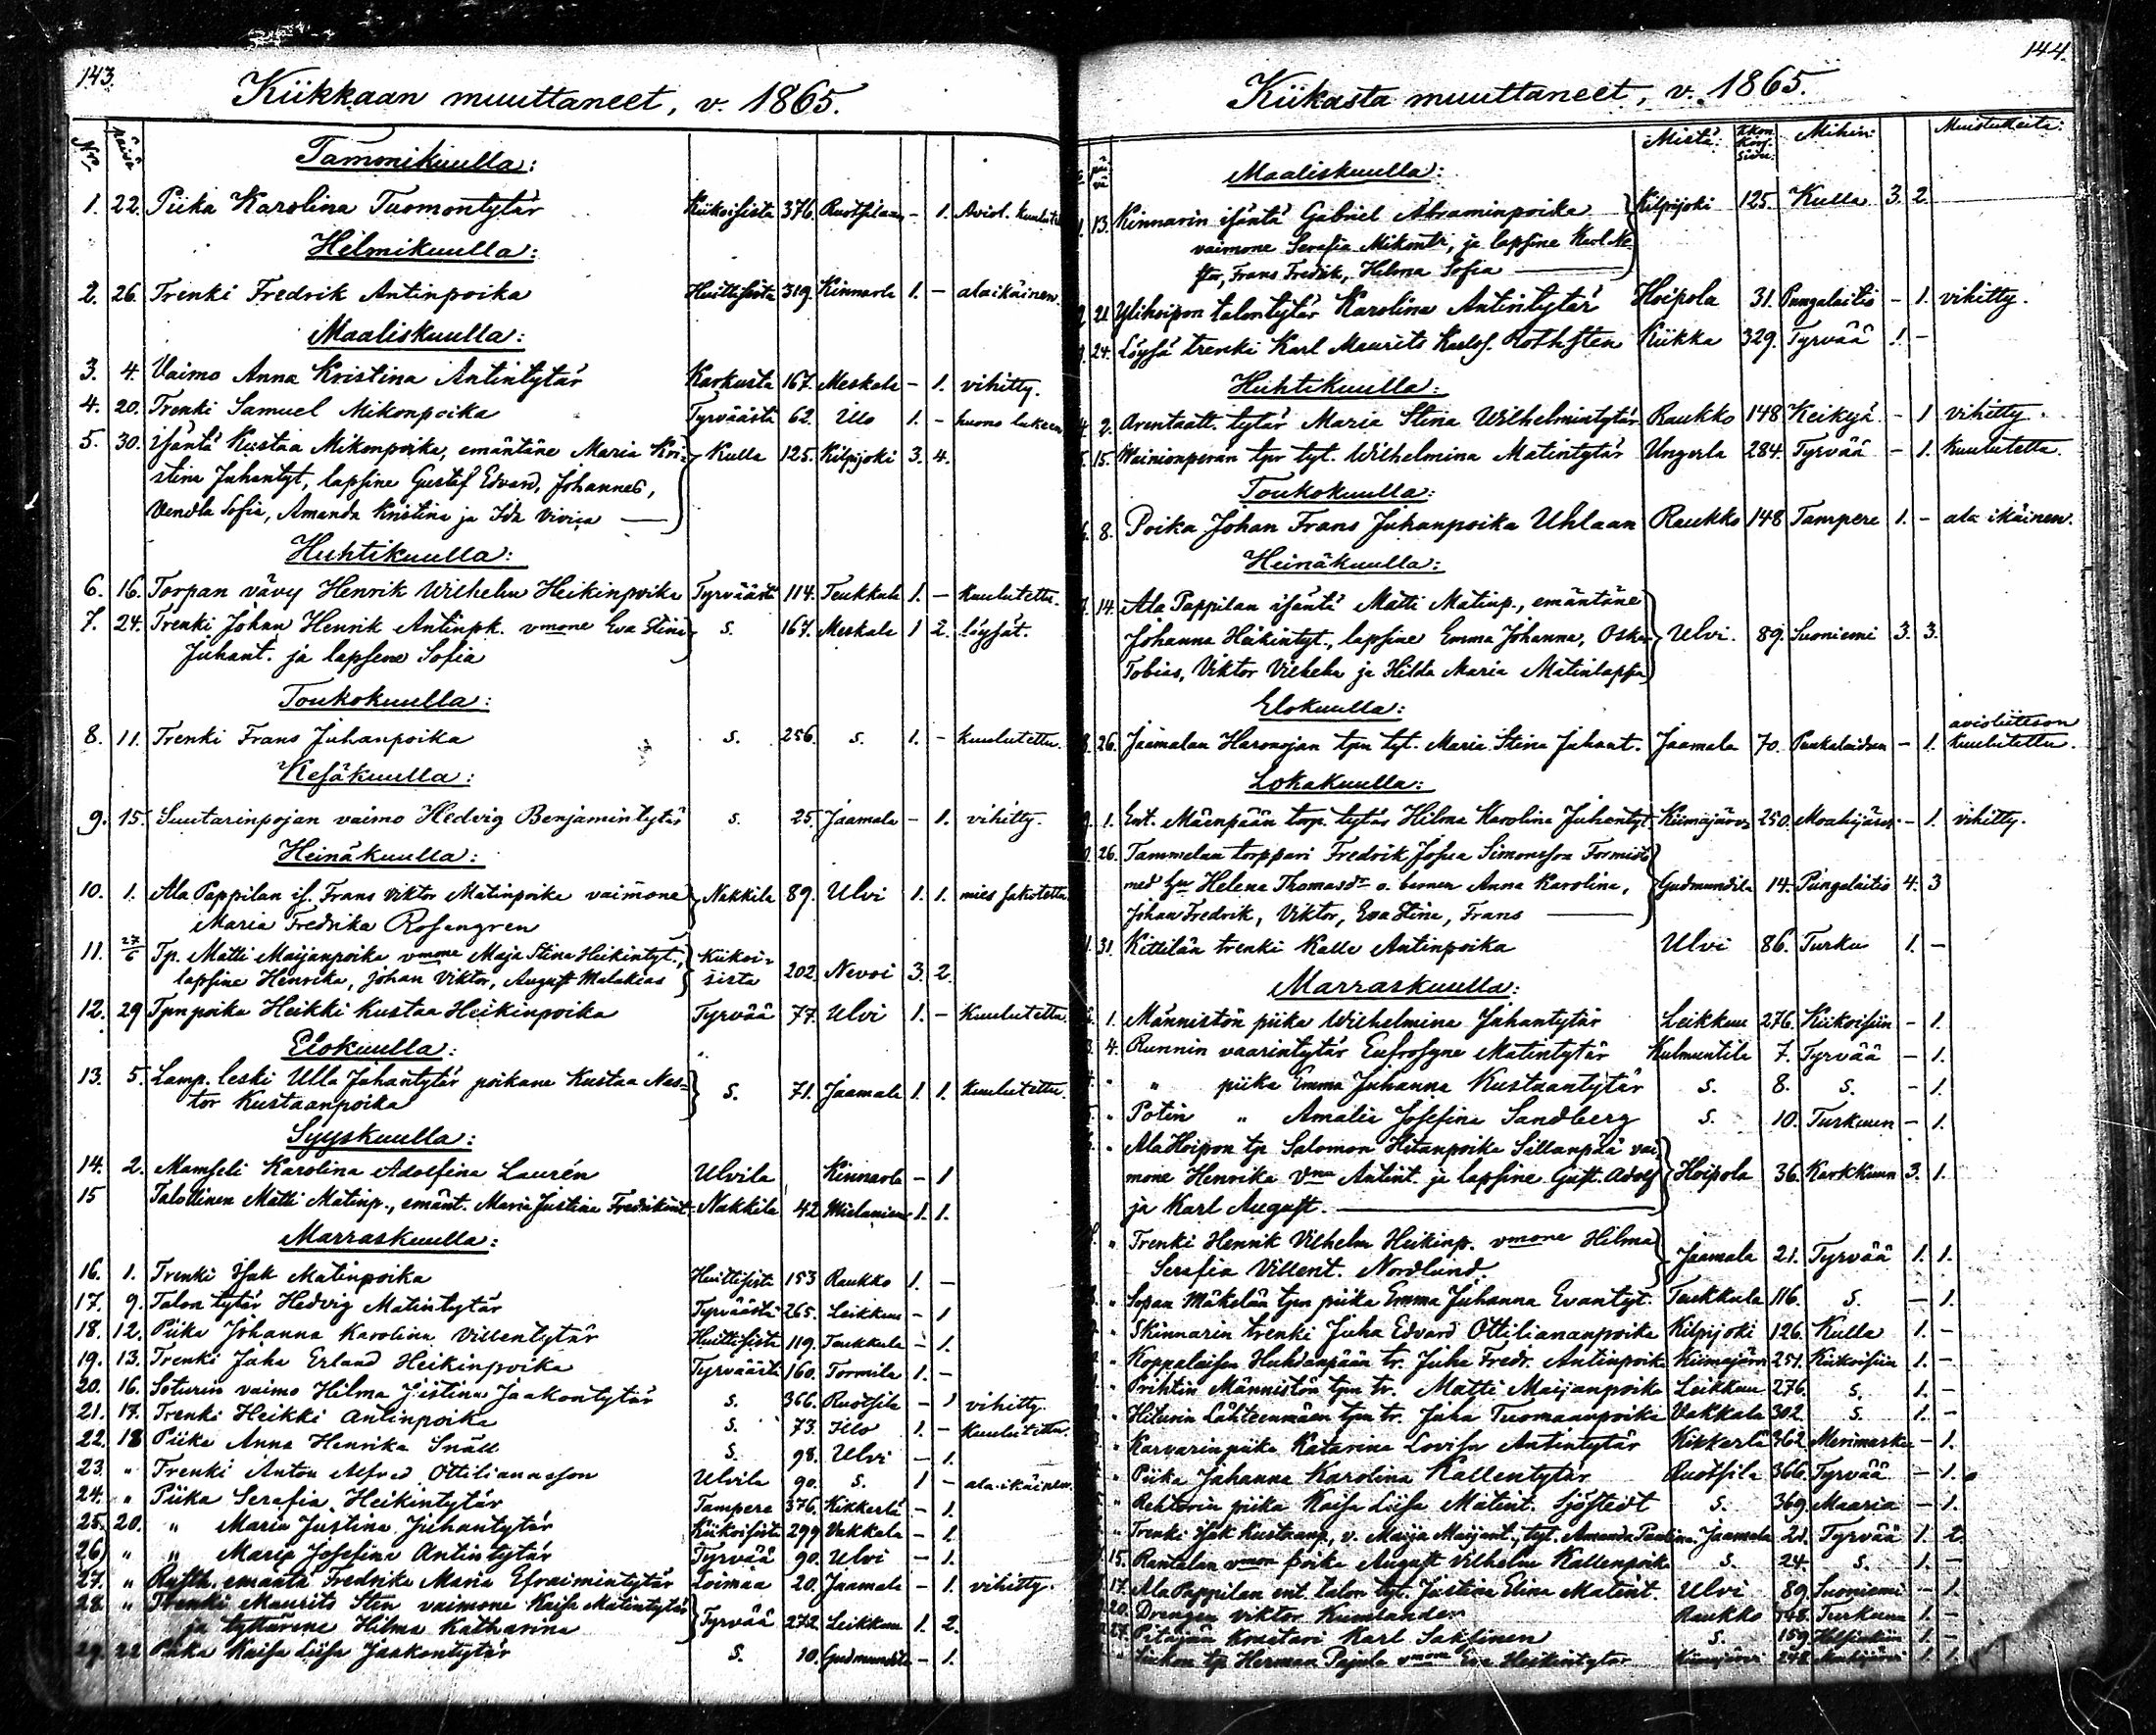 143.
Kiikkaan muuttaneet, v. 1865.
Nro päivä
Tammikuulla:
1. 22. Piika Karolina Tuomontytär Kiikoisista 376. Ruotsilaan - 1. Aviol. kuulute
Helmikuulla:
2. 26. Trenki Fredrik Antinpoika Huittisista 319. Kinnarla 1. - alaikäinen.
Maaliskuulla:
3. 4. Vaimo Anna Kristina Antintytär Karkusta 167. Meskala - 1. vihitty.
4. 20. Trenki Samuel Mikonpoika Tyrväästä 62. Illo 1. - huono lukeen
5. 30. isäntä Kustaa Mikonpoika, emäntäne Maria Kri- Kulla 125. Kilpijoki 3. 4.
stina Juhantyt, lapsine Gustaf Edvard, Johannes,
Vendla Sofia, Amanda Kristina ja Ida Vivica
Huhtikuulla:
6. 16. Torpan vävy Henrik Wilhelm Heikinpoika Tyrväästä 114. Teukkala 1. - kuulutettu.
7. 24. Trenki Johan Henrik Antinpk. vmone Eva Stina s. 167. Meskala 1 2. löysät.
Juhant. ja lapsene Sofia
Toukokuulla:
8. 11. Trenki Frans Juhanpoika s. 256. s. 1. - kuulutettu.
Kesäkuulla:
9. 15. Suutarinpojan vaimo Hedvig Benjamintytär s. 25. Jaamala - 1. vihitty.
Heinäkuulla:
10. 1. Ala Pappilan is. Frans Viktor Matinpoika vaimone Nakkila 89. Ulvi 1. 1. mies
Maria Fredrika Rosengren
11. 27/6 Tp. Matti Maijanpoika vmone Maja Stina Heikintyt., Kiikoi- 202. Nevoi 3. 2.
lapsine Henrika, Johan Viktor, August Malakias sista
12. 29 Tpn poika Heikki Kustaa Heikinpoika Tyrvää 77. Ulvi 1. - Kuulutettu.
Elokuulla:
13. 5. Lamp. leski Ulla Juhantytär poikane Kustaa Nes- s. 71. Jaamala 1. 1. kuulutettu.
tor Kustaanpoika
Syyskuulla:
14. 2. Mamseli Karolina Adolfina Laurén Ulvila Kinnarla - 1
15 Talollinen Matti Matinp., emänt. Maria Justina Fredrikint. Nakkila 42 1. 1.
Marraskuulla:
16. 1. Trenki Isak Matinpoika Huittisista 153 Raukko 1. -
17. 9. Talon tytär Hedvig Matintytär Tyrväästä 265. Leikkuu - 1
18. 12. Piika Johanna Karolina Villentytär Huittisista 119. Teukkala - 1.
19. 13. Trenki Juha Erland Heikinpoika Tyrväästä 160. Tormila 1. -
20. 16. Soturin vaimo Hilma Justina Jaakontytär s. 366. Ruotsila - 1 vihitty.
21. 17. Trenki Heikki Antinpoika s. 73. Illo 1. - kuulutettu.
22. 18 Piika Anna Henrika Snäll s. 98. Ulvi - 1.
23. " Trenki Anton Alfred Ottilianasson Ulvila 90. s. 1 - ala-ikäinen.
24. " Piika Serafia Heikintytär Tampere 376. Kikkerlä - 1.
25. 20. " Maria Justina Juhantytär Kiikoisista 299 Vakkala - 1.
26. " " Maria Josefina Antintytär Tyrvää 90. Ulvi - 1.
27. " Rusth. emäntä Fredrika Maria Efraimintytär Loimaa 20. Jaamala - 1. vihitty.
28. " Trenki Maurits Sten vaimone Kaisa Matintytär Tyrvää 272. Leikkuu 1. 2.
ja tyttärene Hilma Katharina
29. 22 Piika Kaisa Liisa Jaakontytär s. 10. Gudmundila - 1.
144.
Kiikasta muuttaneet, v. 1865.
päivä Mistä: Kkon kirj. sivu: Mihin: Muistutteita:
Maaliskuulla:
1. 13. Kinnarin isäntä Gabriel Abraminpoika Kilpijoki 125. Kulla 3. 2.
vaimone Serafia Mikontr, ja lapsine Karl Ne-
stor, Frans Fredrik, Hilma Sofia
2 21 Ylihoipon talontytär Karolina Antintytär Hoipola 31. Pungalaitio - 1. vihitty.
3. 24. Löysä trenki Karl Maurits Karlss. Rothsten Kiikka 329. Tyrvää 1. -
Huhtikuulla:
4. 2. Arentaatt. tytär Maria Stina Wilhelmintytär Raukko 148 Keikyä - 1 vihitty.
5. 15. Wainionperän tpr tyt. Wilhelmina Matintytär Ungerla 284. Tyrvää - 1. kuulutettu.
Toukokuulla:
6. 8. Poika Johan Frans Juhanpoika Uhlaan Raukko 148 Tampere 1. - ala ikäinen.
Heinäkuulla:
7. 14. Ala Pappilan isäntä Matti Matinp., emäntäne
Johanna Heikintyt., lapsine Emma Johanna, Oskar Ulvi. 89. Suoniemi 3. 3.
Tobias, Viktor Vilhelm ja Hilda Maria Matinlapsia
Elokuulla:
avioliittoon
8. 26. Jaamalan Haronojan tpn tyt. Maria Stina Juhant. Jaamala 70. Punkalaidun - 1. kuulutettu.
Lokakuulla:
9. 1. Ent. Mäenpään torp. tytär Hilma Karolina Juhantyt. Kiimajärvi 250. Mouhijärvi - 1. vihitty.
10. 26. Tammelan torppari Fredrik Josua Simonsson Formisto
med hu Helena Thomasdr o. barnen Anna Karolina, Gudmundila 14. Pungalaitio 4. 3
Johan Fredrik, Viktor, Eva Stina, Frans
11. 31. Kittilän trenki Kalle Antinpoika Ulvi 86. Turku 1. -
Marraskuulla:
1. Männistön piika Wilhelmina Juhantytär Leikkuu 276. Kiikoisiin - 1.
4. Runnin vaarintytär Eufrosyne Matintytär Kulmuntila 7. Tyrvää - 1.
" " piika Emma Juhanna Kustaantytär s. 8. s. - 1.
" Potin " Amalia Josefina Sandberg s. 10. Turkuun - 1.
" Ala Hoipon tp Salomon Hetanpoika Sillanpää vai-
mone Henrika Vma Antint. ja lapsine Gust. Adolf Hoipola 36. Karkkuun 3. 1.
ja Karl August.
" Trenki Henrik Vilhelm Heikinp. vmone Hilma Jaamala 21. Tyrvää 1. 1.
Serafia Villent. Nordlund.
" Sopan Mäkelän tpn piika Emma Juhanna Evantyt. Teukkala 116. s. - 1.
" Skinnarin trenki Juha Edvard Ottiliananpoika Kilpijoki 126. Kulla 1. -
" Koppalaisen Huhdanpään tr. Juha Fredr. Antinpoika Kiimajärvi 251. Kiikoisiin 1. -
" Prihtin Männistön tpn tr. Matti Maijanpoika Leikkuu 276. s. 1. -
" Hiturin Lähteenmäen tpn tr. Juha Tuomaanpoika Vakkala 302. s. 1. -
" Karvarin piika Katarina Lovisa Antintytär Kikkerlä 362 Merimasku - 1.
" Piika Johanna Karolina Kallentytär Ruotsila 366. Tyrvää - 1.
" Rehtorin piika Kaisa Liisa Matint. Sjöstedt s. 369. Maaria - 1.
" Trenki Isak Kustaanp., v. Maija Maijant., tyt. Amanda Paulina Jaamala 21. Tyrvää 1. 2.
15. Rantalan vmon poika August Vilhelm Kallenpoika s. 24. s. 1. -
17. Ala Pappilan ent. talon tyt. Justina Elina Matint. Ulvi 89. Suoniemi - 1.
20. Drengen Viktor Kumlander Raukko 148. Turkuun 1. -
27. Pitäjän Karl s. 159. Helsinkiin 1. -
" tp Herman Pajula vmone Eva Heikintytär Kiimajärvi 248. Mouhijärvi 1. 1.